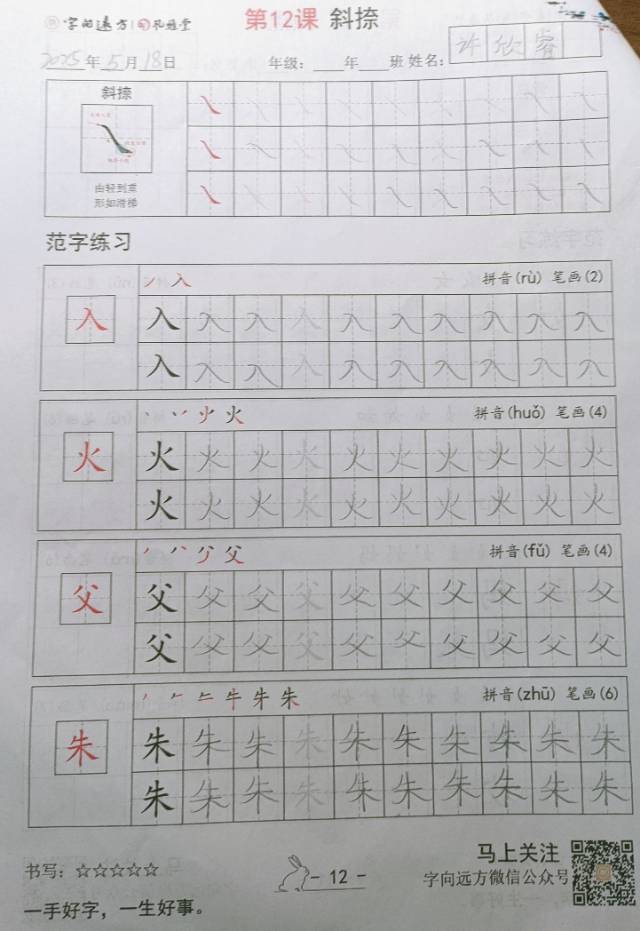 字向远方 孔雅堂
第12课 斜捺
2025年5月18日 年级:____年____班 姓名: 许欣睿
斜捺
由轻到重
形如滑梯
范字练习
丿 入 拼音(rù) 笔画(2)
入 入 入 入 入 入 入 入 入 入 入
入 入 入 入 入 入 入 入 入 入
火 火 拼音(huǒ) 笔画(4)
火 火 火 火 火 火 火 火 火 火 火
火 火 火 火 火 火 火 火 火 火
父 拼音(fǔ) 笔画(4)
父 父 父 父 父 父 父 父 父 父 父
父 父 父 父 父 父 父 父 父 父
朱 拼音(zhū) 笔画(6)
朱 朱 朱 朱 朱 朱 朱 朱 朱 朱 朱
朱 朱 朱 朱 朱 朱 朱 朱 朱 朱
书写:☆☆☆☆☆
- 12 -
马上关注
字向远方微信公众号
一手好字,一生好事。